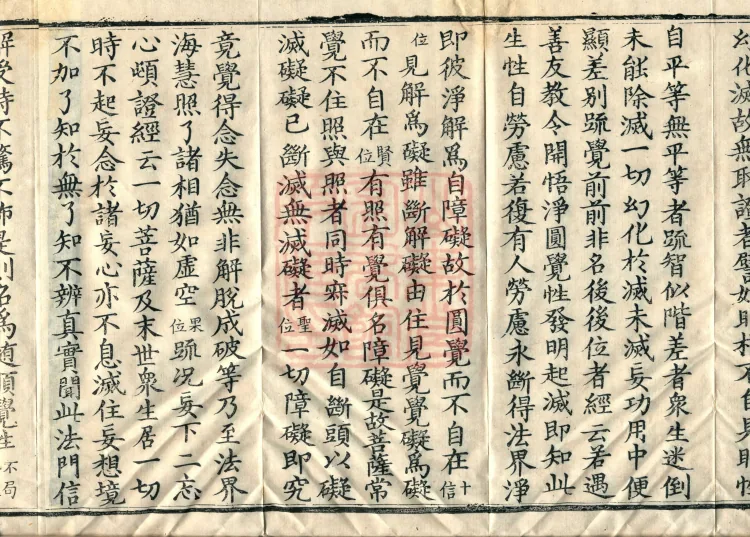 幻化滅故無取證者譬如眼根不自見眼性
自平等無平等者䟽智似階差者衆生迷倒
未能除滅一切幻化於滅未滅妄功用中便
顯差別䟽覺前前非名後後位者經云若遇
善友教令開悟淨圓覺性發明起滅即知此
生性自勞慮若復有人勞慮永斷得法界淨
即彼淨解爲自障礙故於圓覺而不自在十信
位見解爲礙雖斷解礙由住見覺覺礙爲礙
而不自在賢位有照有覺俱名障礙是故菩薩常
覺不住照與照者同時寂滅如自斷頭以礙
滅礙礙已斷滅無滅礙者聖位一切障礙即究
竟覺得念失念無非解脫成破等乃至法界
海慧照了諸相猶如虛空果位䟽况妄下二忘
心頓證經云一切菩薩及末世衆生居一切
時不起妄念於諸妄心亦不息滅住妄想境
不加了知於無了知不辨真實聞此法門信
解受持不驚不怖是則名爲隨順覺性不局